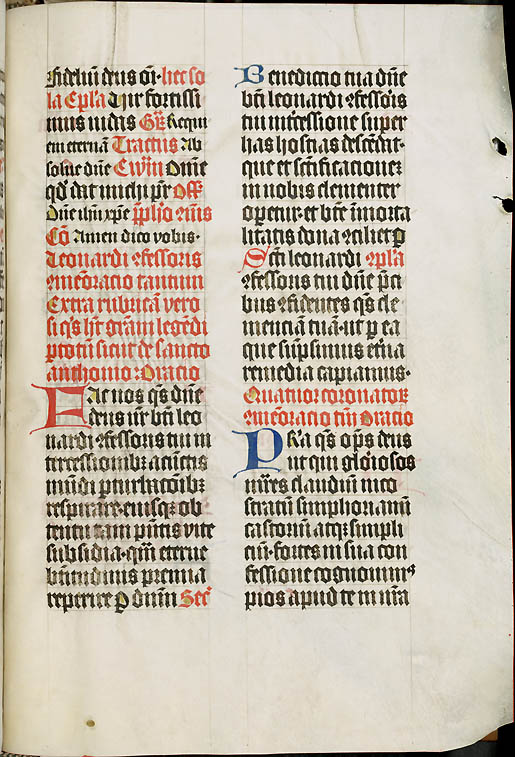 fideliū deus oī· hec so
la Epl'a Vir fortissi
mus iudas Gř Requi
em eternā Tractus Ab
solue dn̄e Ewm̄ Dixit
qd' dat michi pr̄ Off
Dn̄e ih̄u xp̄e
Cō Amen dico vobis·
Leonardi ꝯfessoris
memoracio tantum
Extra rubricā vero
si q̄s hr̄ gr̄am legēdi
pro totū sicut de sancto
anthonio Oracio
Fac nos q̄s dn̄e
deus nr̄ btī leo
nardi ꝯfessoris tui in
tercessionibꝫ a cūctis
mūdi ꝑturbacōibꝫ
respirare· eiusqꝫ ob
tentu tam pn̄tis vite
subsidia· qm̄ eterne
btitudinis premia
reperire ꝑ dnm̄ Secr̄
Benediccio tua dn̄e
btī leonardi ꝯfess̄oris
tui int̄cessione super
has hostias descēdat·
que et sc̄tificacionē
in nobis clementer
opetur· et bt̄e īmorta
litatis dona ꝯciliet ꝑ
Sct̄i leonardi ꝯpl'a
ꝯfessoris tui dn̄e p̄ci
bus ꝯfidentes q̄s cle
menciā tuā· ut ꝑ ea
que sūpsimus et̄na
remedia capiamus·
Quatuor coronatoꝝ
memoracio tm̄ Oracio
PRa q̄s op̄s deus
ut qui gloriosos
mr̄es claudium nico
stratum simphorianū
castoriū atqꝫ simpli
ciū· fortes in sua con
fessione cognouimꝰ
pios apud te in nr̄a